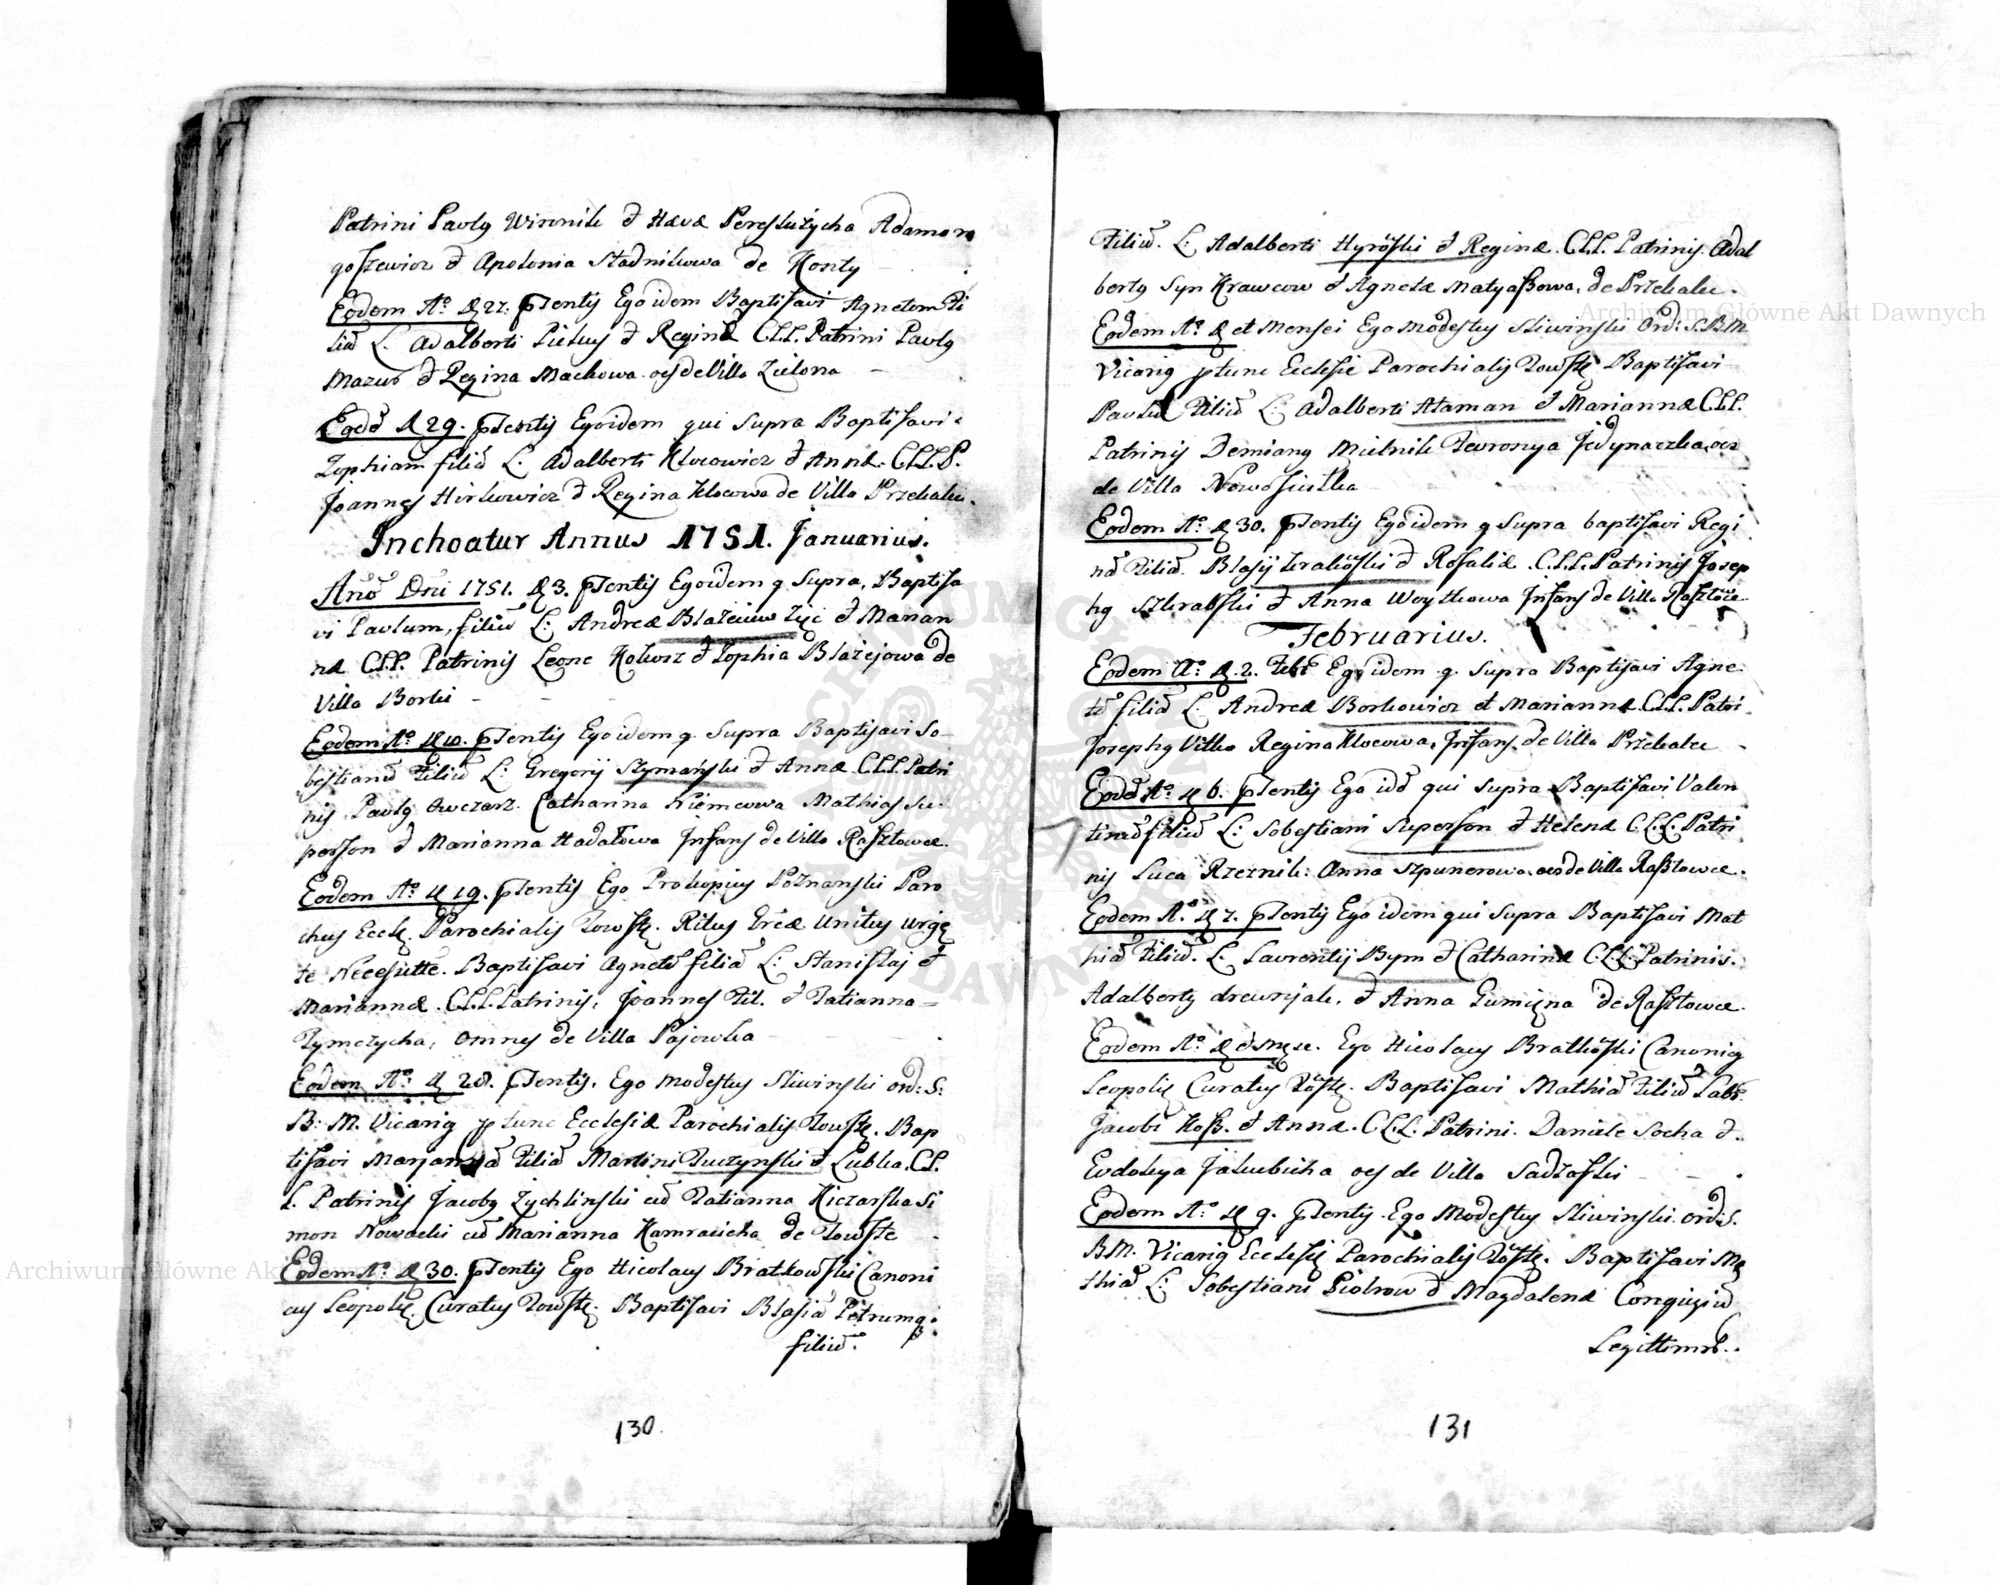 Patrini Pavlg Wiernik et Hæva Peresluzycha Adamon
goszewicz et Apolonia Stadnikowa de Koszty
Eodem Ao. D 27. pñtentis Ego idem Baptisavi Agnetem Fi
liã L. Adalberti et Reginæ C.L.L. Patrini Pavlg
Mazur et Regina Mackowa oes de Villa Zielona
Eodẽ D 29. Ego idem qui Supra Baptisavi
Zophiam filiã L. Adalberti Klocowicz et Annæ. C.L.L.P.
Joannes Hirkowicz et Regina Klocowa de Villa Przekalec.
Inchoatur Annus 1751. Januarius.
Anõ Dni 1751. D 3. Ego idem q. Supra, Baptisa
vi Pavlum, filiũ L: Andreæ Blazeiewzyc et Marian
næ C.L.L. Patrinis Leone Kolosz et Zophia Blazejowa de
Villa Borki
Eodem Ao. D 10. Ego idem q. Supra Baptisavi Se-
bestianũ Filiũ L: Gregorij Szymański et Annæ C.L.L. Patri
nis Pavlg Owczarz. Catharina Niemcowa Mathias Su-
person et Marianna Hadałowa Infans de Villa Rasztowce.
Eodem Ao. D 19. Ego Prokopius Poznanski Paro
chus Eccle. Parochialis Towste. Ritus Grcæ Unitus urge
te Necesitte. Baptisavi Agnetẽ filiã L: Stanislaj et
Mariannæ. C.L.L. Patrinis, Joannes Fil. et Tatianna
Tymczycha, omnes de Villa Pajowka
Eodem Ao. D 28. Ego Modestus Sliwinski Ord: S:
B: M. Vicarig p tunc Ecclesiæ Parochialis Towste. Bap
tisavi Mariannã Filiã Martini Tuczynski et Lubka. C.L.
L. Patrinis Jacobg Zychlinski cũ Tatianna Kiczarska Si
mon Nowacki cũ Marianna Hamracicha de Towste
Eodem Ao. D 30. Ego Nicolaus Bratkowski Canoni
cus Leopolie. Curatus Towste. Baptisavi Blasiũ Petrumq:
filiũ.
130.
Filiũ. L: Adalberti Hyroski et Reginæ. C.L.L. Patrinis. Adal
bertg Syn Krawcow et Agneta Matyaszowa, de Przekalec.
Eodem Ao. D et Mensei Ego Modestus Sliwinski Ord: S.B.M.
Vicarig ptunc Ecclesie Parochialis Towste Baptisavi
Pavlũ Filiũ L: Adalberti Ataman et Mariannæ C.L.L.
Patrinis Demiang Mielnik Fevronya Jedynaczka, oes
de Villa Nowosiułka
Eodem Ao. D 30. Ego idem q Supra baptisavi Regi
nã Filiã. Blasij et Rosaliæ C.L.L. Patrinis Josep
hg et Anna Woytkowa Infans de Villa Rasztowce
Februarius.
Eodem Ao. D. 2. Febr Ego idem q. Supra Baptisavi Agne
tẽ filiã L. Andreæ Borkowicz et Mariannæ. C.L.L. Patri.
Josephg Vitko Regina Klocowa, Infans. de Villa Przekalec
Eodẽ Ao. D 6. Ego idẽ qui Supra Baptisavi Valen
tinũ filiũ L: Sobestiani Superson et Helenæ C.L.L. Patri
nis Luca Rzeznik: Anna Szpunerowa oes de Villa Rasztowce.
Eodem A. D 7. Ego idem qui Supra Baptisavi Mat
hiã Filiũ. L. Laurentij Bym et Catharinæ C.L.L. Patrinis.
Adalbertg drewnjak, et Anna Gumięna de Rasztowce.
Eodem Ao. D et Mse. Ego Nicolaus Bratkoski Canonig
Leopolie Curatus Toste. Baptisavi Mathiã Filiũ Labr.
Jacobi Kosz. et Annæ. C.L.L. Patrini. Daniele Socha et.
Evdokya Jakubicha oes de Villa Sadzoski
Eodem Ao. D 9. Ego Modestus Sliwinski Ord: S.
B.M. Vicarig Ecclesie Parochialis Toste. Baptisavi Ma
thiã L: Sobestiani Piotrow et Magdalenæ Congiugiũ
Legittimor.
131
Archiwum Główne Akt Dawnych
Archiwum Główne Akt Dawnych
ARCHIWUM GŁÓWNE AKT DAWNYCH